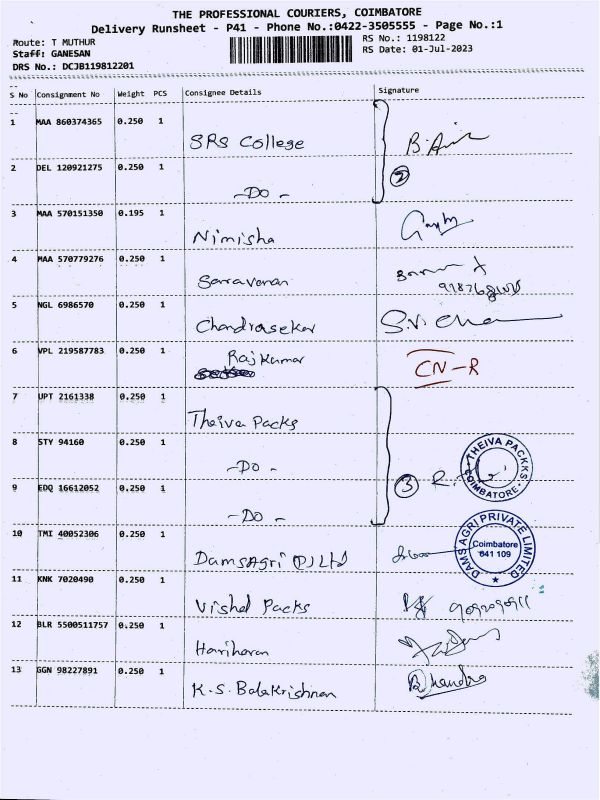 THE PROFESSIONAL COURIERS, COIMBATORE
Delivery Runsheet - P41 - Phone No.:0422-3505555 - Page No.:1
Route: T MUTHUR
RS No.: 1198122
Staff: GANESAN
RS Date: 01-Jul-2023
DRS No.: DCJB119812201
--
S No Consignment No Weight PCS Consignee Details Signature
--
1 MAA 860374365 0.250 1
SRS College
2 DEL 120921275 0.250 1
2
-Do-
3 MAA 570151350 0.195 1
Nimisha
4 MAA 570779276 0.250 1
Saravanan
5 NGL 6986570 0.250 1
Chandrasekar
6 VPL 219587783 0.250 1 Rajkumar
CN-R
7 UPT 2161338 0.250 1
Theiva Packs
8 STY 94160 0.250 1
-Do-
THEIVA PACKKS
COIMBATORE.
9 EDQ 16612052 0.250 1
3 R.
-Do-
10 TMI 40052306 0.250 1
DamsAgri (P) Ltd
DAMS AGRI PRIVATE LIMITED
Coimbatore
641 109
11 KNK 7020490 0.250 1
Vishal Packs
12 BLR 5500511757 0.250 1
Hariharan
13 GGN 98227891 0.250 1
K.S. BalaKrishnan